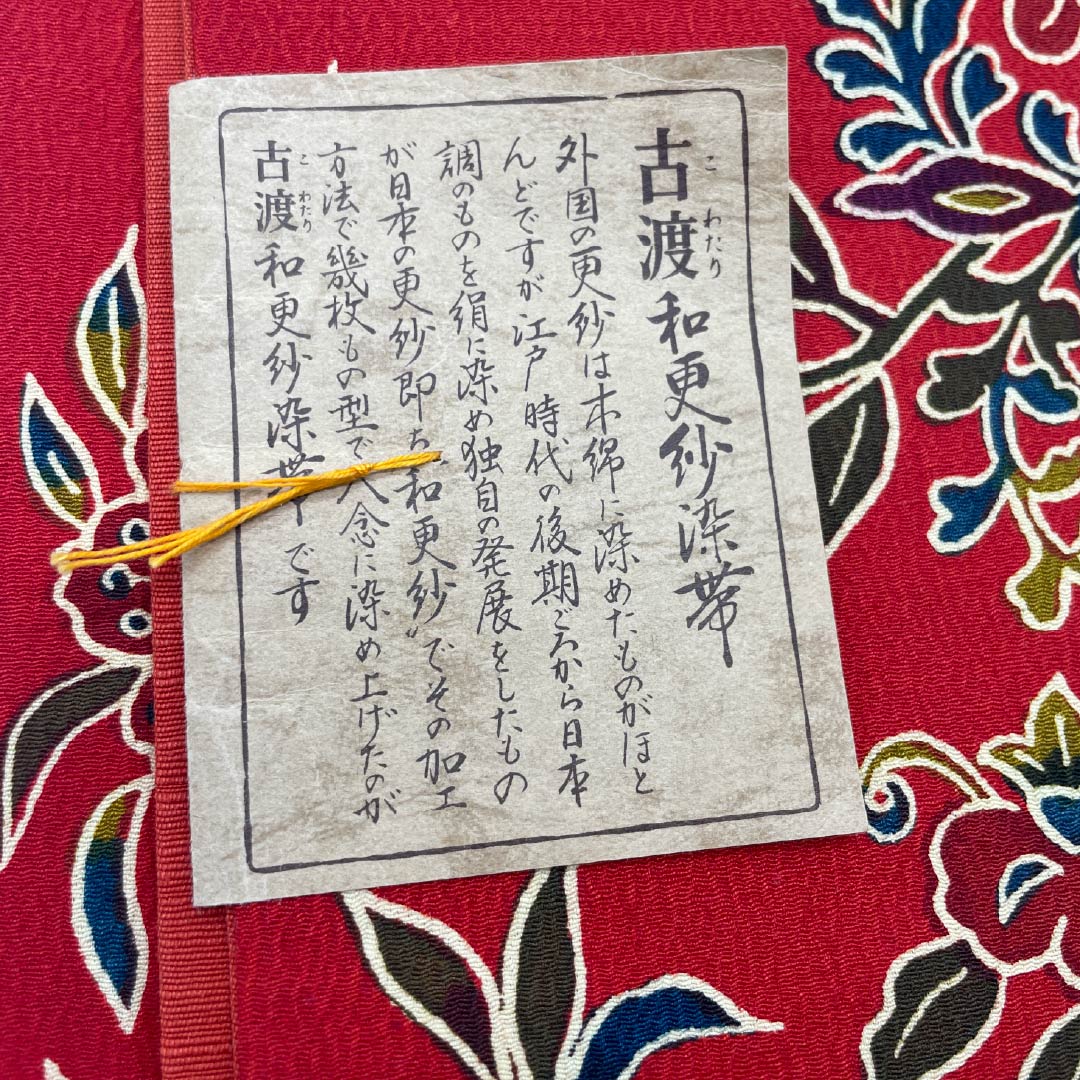 古渡和更紗染帯
こ わたり
外国の更紗は木綿に染めたものがほと
んどですが江戸時代の後期ごろから日本
調のものを絹に染め独自の発展をしたもの
が日本の更紗即ち〝和更紗〟でその加工
方法で幾枚もの型で入念に染め上げたのが
古渡和更紗染帯です
こ わたり